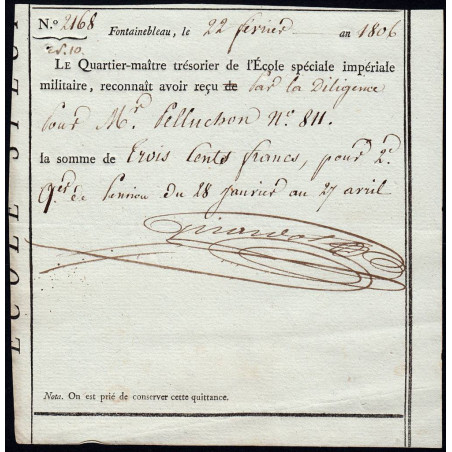 N.º 2168 Fontainebleau, le 22 février an 1806
25.10.
LE Quartier-maître trésorier de l'École spéciale impériale
militaire, reconnaît avoir reçu de Par la Diligence
pour Mr. Pelluchon Nº. 811.
la somme de Trois Cents francs, pour 2e
qer de Pension du 28 janvier au 27 avril
Nota. On est prié de conserver cette quittance.